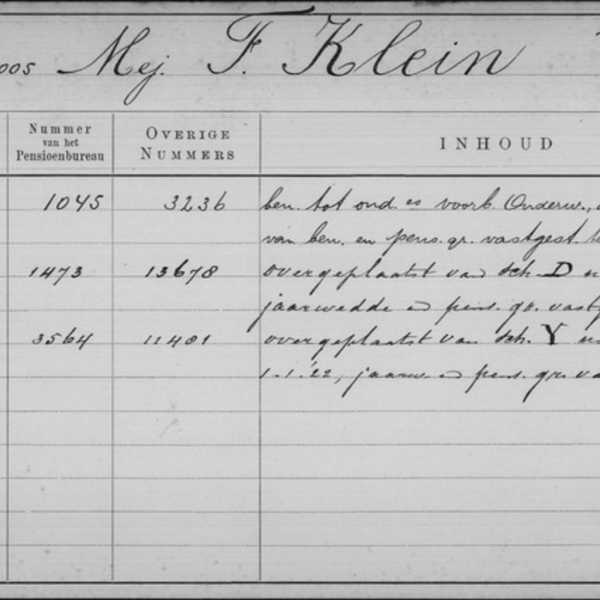 oos Mej. F. Klein
Nummer
van het
Pensioenbureau
OVERIGE
NUMMERS
INHOUD
1045 3236 ben. tot ond. es voorb. Onderw.,
van ben. en pens. gr. vastgest.
1473 13678 overgeplaatst van sch. D
jaarwedde en pens. gr. vast
3564 11481 overgeplaatst van sch. Y
1.1.'22, jaarw. en pens. gr. va